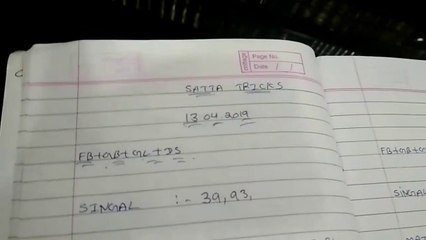 Page No.
Date / /
SATTA TRICKS
13 04 2019
FB+GB+GL+DS
FB+GB+
SINGAL :- 39,93,
SINGAL